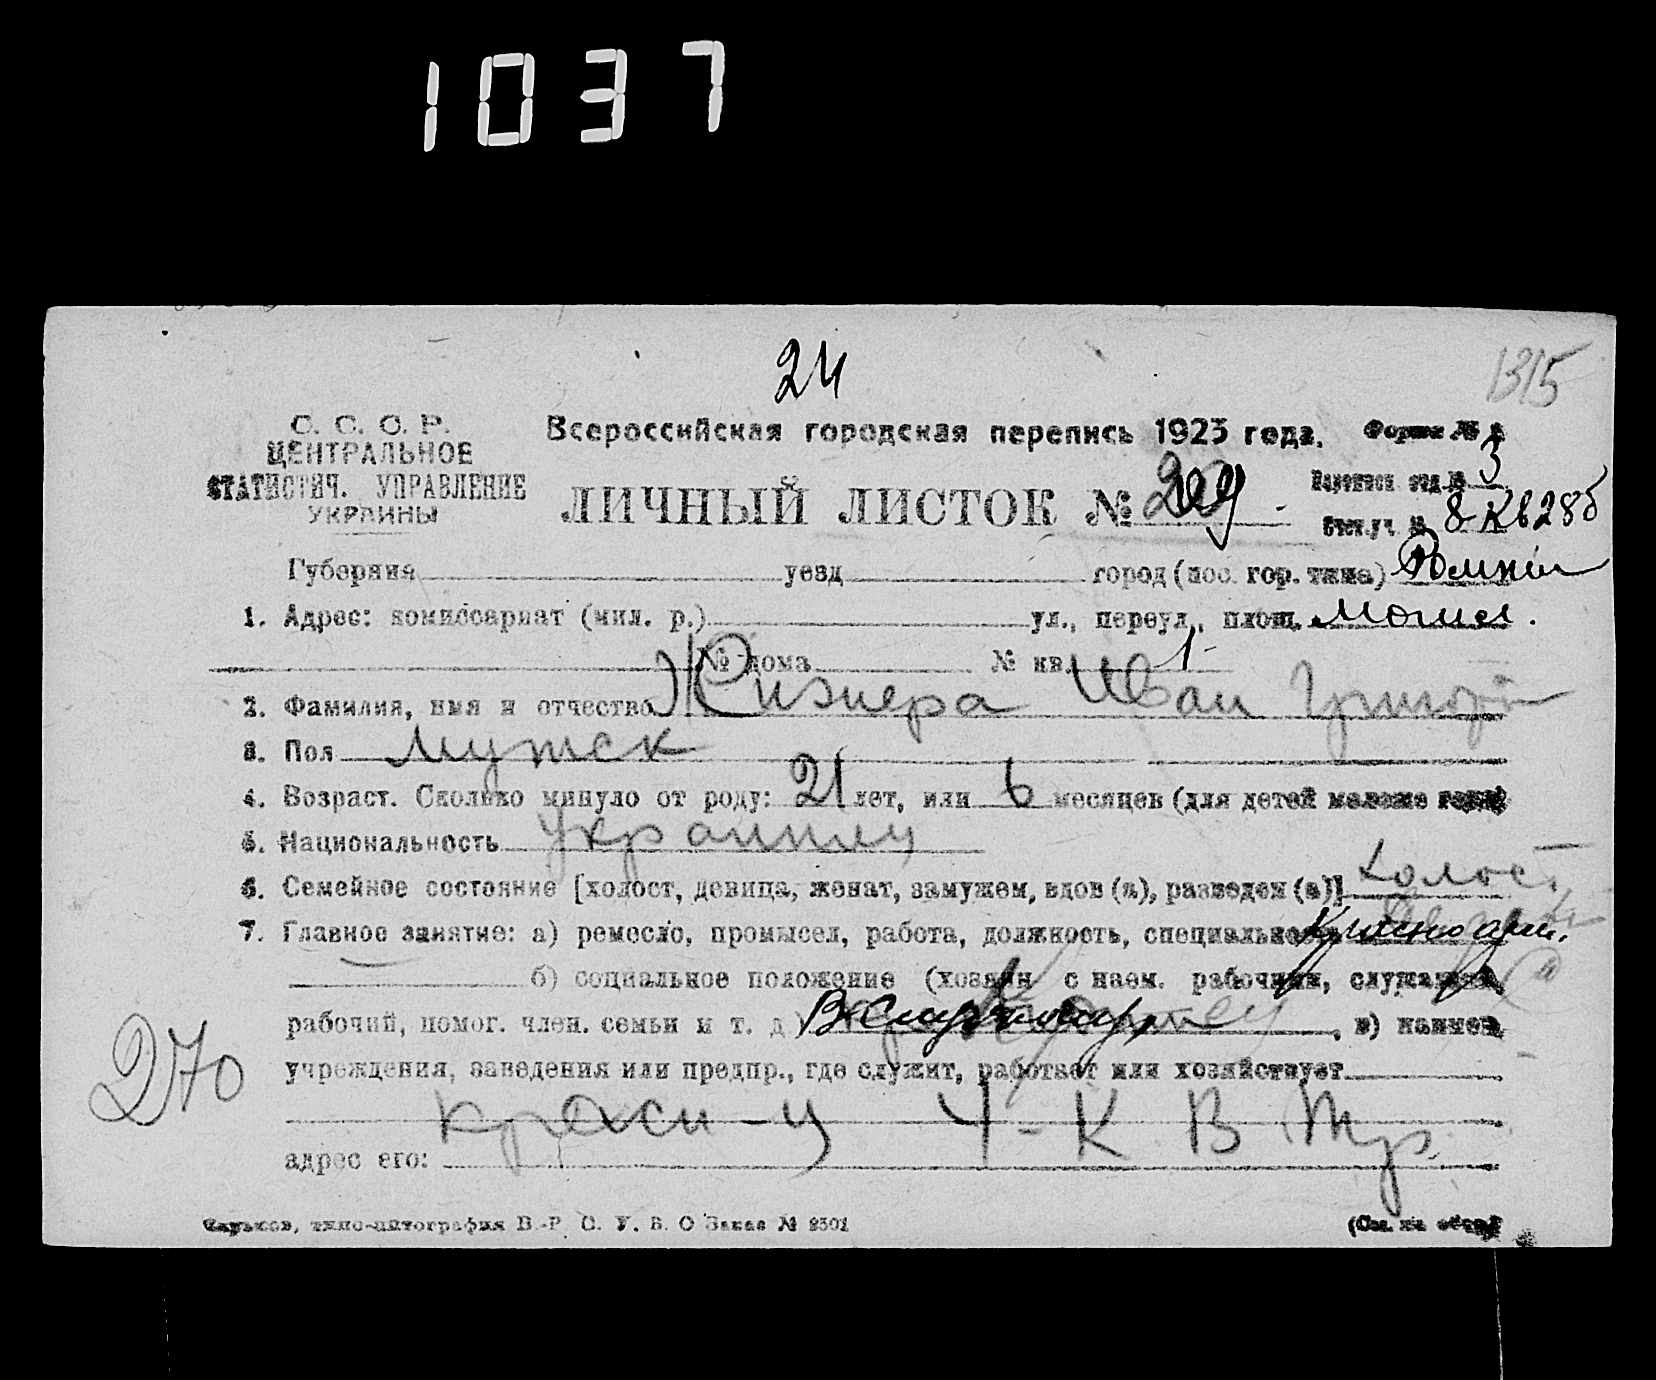 1037
24
1315
С. С. С. Р.
ЦЕНТРАЛЬНОЕ
СТАТИСТИЧ. УПРАВЛЕНИЕ
УКРАИНЫ
Всероссийская городская перепись 1923 года.
Форма №
ЛИЧНЫЙ ЛИСТОК №
3
8 Кв 28б
Губерния уезд город (пос. гор. типа) Ромни
1. Адрес: комиссариат (мил. р.) ул., переул., площ.
№ дома № кв. 1
2. Фамилия, имя и отчество Иван Григор
3. Пол мужск
4. Возраст. Сколько минуло от роду: 21 лет, или 6 месяцев (для детей моложе года)
5. Национальность украинец
6. Семейное состояние [холост, девица, женат, замужем, вдов (а), разведен (а)] холост
7. Главное занятие: а) ремесло, промысел, работа, должность, специальность
б) социальное положение (хозяин с наем. рабочими, служащий,
рабочий, помог. член. семьи и т. д.) , в) наимен.
учреждения, заведения или предпр., где служит, работает или хозяйствует
270
адрес его:
Харьков, типо-литография В.-Р. С. У. В. О Заказ №
(См. на обор.)